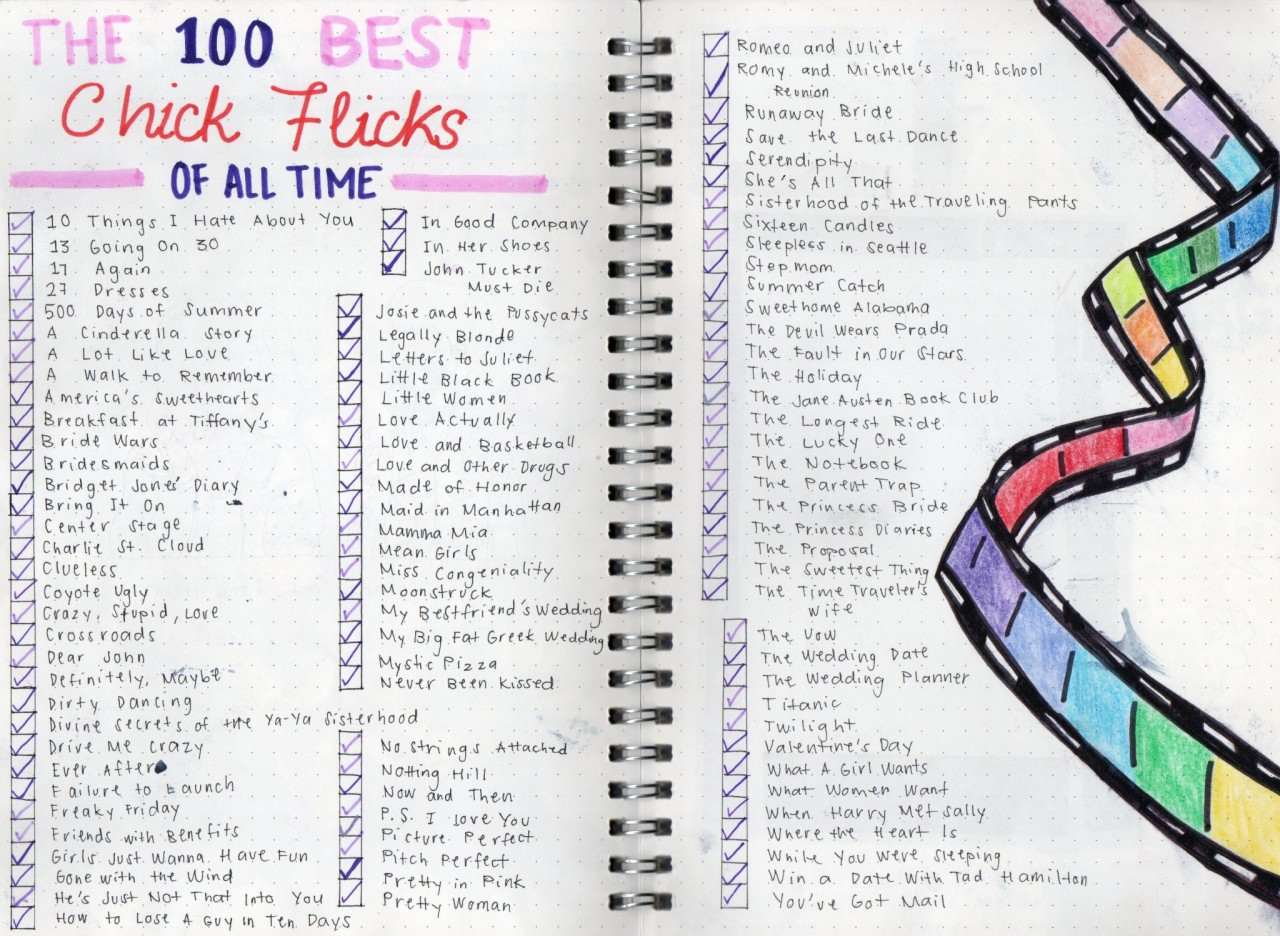 THE 100 BEST
Chick Flicks
OF ALL TIME
10 Things I Hate About You
13 Going On 30
17 Again
27 Dresses
500 Days of Summer
A Cinderella Story
A Lot Like Love
A Walk to Remember
America's Sweethearts
Breakfast at Tiffany's
Bride Wars
Bridesmaids
Bridget Jones' Diary
Bring It On
Center Stage
Charlie St. Cloud
Clueless
Coyote Ugly
Crazy, Stupid, Love
Crossroads
Dear John
Definitely, Maybe
Dirty Dancing
Divine Secrets of the Ya-Ya Sisterhood
Drive Me Crazy
Ever After
Failure to Launch
Freaky Friday
Friends with Benefits
Girls Just Wanna Have Fun
Gone with the Wind
He's Just Not That Into You
How to Lose A Guy in Ten Days
In Good Company
In Her Shoes
John Tucker
Must Die
Josie and the Pussycats
Legally Blonde
Letters to Juliet
Little Black Book
Little Women
Love Actually
Love and Basketball
Love and Other Drugs
Made of Honor
Maid in Manhattan
Mamma Mia
Mean Girls
Miss Congeniality
Moonstruck
My Bestfriend's Wedding
My Big Fat Greek Wedding
Mystic Pizza
Never Been Kissed
No Strings Attached
Notting Hill
Now and Then
P.S. I Love You
Picture Perfect
Pitch Perfect
Pretty in Pink
Pretty Woman
Romeo and Juliet
Romy and Michele's High School
Reunion
Runaway Bride
Save the Last Dance
Serendipity
She's All That
Sisterhood of the Traveling Pants
Sixteen Candles
Sleepless in Seattle
Stepmom
Summer Catch
Sweethome Alabama
The Devil Wears Prada
The Fault in Our Stars
The Holiday
The Jane Austen Book Club
The Longest Ride
The Lucky One
The Notebook
The Parent Trap
The Princess Bride
The Princess Diaries
The Proposal
The Sweetest Thing
The Time Traveler's
Wife
The Vow
The Wedding Date
The Wedding Planner
Titanic
Twilight
Valentine's Day
What A Girl Wants
What Women Want
When Harry Met Sally
Where the Heart Is
While You Were Sleeping
Win a Date With Tad Hamilton
You've Got Mail